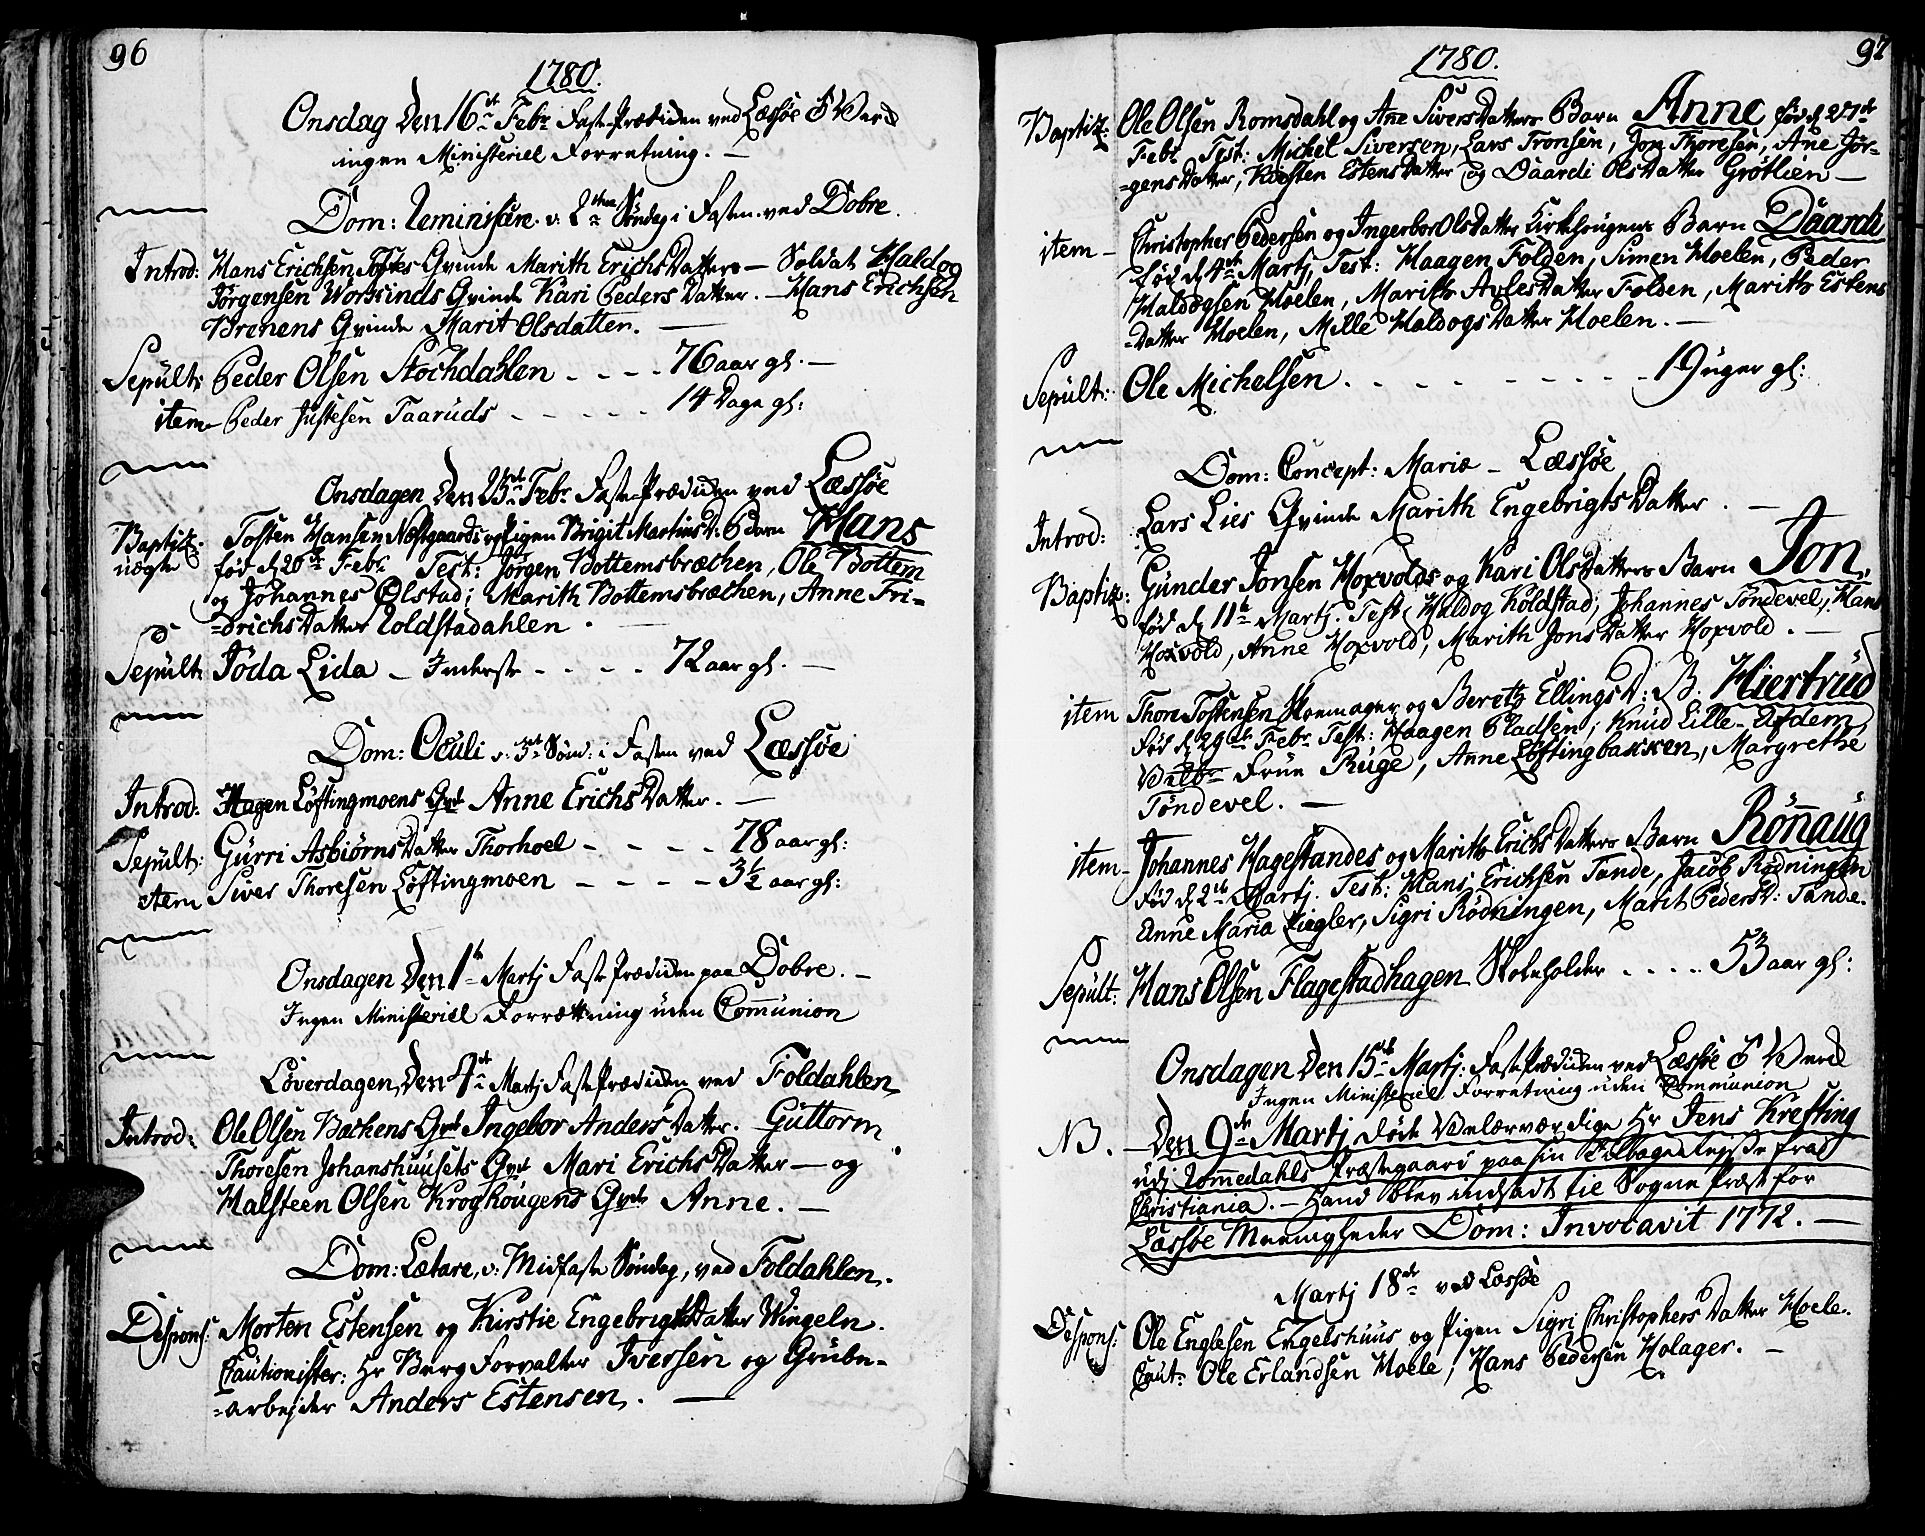 96
1780.
Onsdag Den 16de Febr Faste-Prædiken ved Læssøe
ingen Ministeriel Forretning. —
Dom: Reminiscere v: 2den Søndag i Fasten ved Dobre.
Introd: Hans Erichsen Toftes Qvinde Marith ErichsDatter — Soldat Haldog
Jørgensen Qvinde Kari PedersDatter. — Hans Erichsen
Brenens Qvinde Marit Olsdatter. —
Sepult: Peder Olsen Stochdahlen - - - - 76 aar gl. —
item - Peder Justesen Taaruds - - - - - 14 Dage gl:
Onsdagen Den 23de Febr Faste-Prædiken ved Læssøe
Baptiz: Tosten Hansen Nestgaards og Pigen Brigit MartinsD: Barn Hans
uægte født d 20de Febr Test: Jørgen Bottemsbræchen, Ole Bottem
og Johannes Ølstad; Marith Bottemsbræchen, Anne Fri-
=drichsDatter Koldstadahlen. —
Sepult: Jøda Lida — Inderste - - - - 72 aar gl. —
Dom: Oculi v: 3de Sønd: i Fasten ved Læssøe
Introd: Hagen Løftingmoens Qvde Anne ErichsDatter. —
Sepult: Gurri AsbiørnsDatter Thorhoel - - - - 78 aar gl:
item Siver Thoresen Løftingmoen - - - - 3½ aar gl:
Onsdagen Den 1te Martj Faste Prædiken paa Dobre. —
Ingen Ministeriel Forrettning uden Communion
Løverdagen, Den 4de Martj Faste Prædiken ved Foldahlen
Introd: Ole Olsen Bachens Qvde Ingebor AndersDatter. Guttorm
Thoresen Johanshuusets Qvde Mari ErichsDatter — og
Halsteen Olsen Kroghougens Qvde Anne. —
Dom: Lætare, v: Midfaste Søndag, ved Foldahlen.
Despons: Morten Estensen og Kirstie EngebrigtsDatter Wingeln.
Cautionister: Hr Berg Forvalter Iversen og Grube-
=arbejder Anders Estensen. —
97
1780.
Baptiz: Ole Olsen Romsdahl og Ane SiversDatters Barn Anne fød d 27de
Febr Test: Michel Siversen, Lars Tronsen, Jon Thoresen, Ane Jør-
=gensDatter, Kiersten EstensDatter og Daardi OlsDatter Grøtlien —
item — Christopher Pedersen og Ingebor OlsDatter Kirkehougens Barn Daardi
fød d 4de Martj, Test: Haagen Folden, Simen Moelen, Peder
Haldogsen Moelen, Marith AvlesDatter Folden, Marith Estens
=Datter Moelen, Mille HaldogsDatter Moelen. —
Sepult: Ole Michelsen - - - - - - - - 19 uger gl:
Dom: Concept: Mariæ — Læssøe
Introd: Lars Lies Qvinde Marith EngebrigtsDatter. —
Baptiz: Gunder Jonsen Hoxvolds og Kari OlsDatters Barn Jon,
fød d 11te Martj. Test: Haldog Koldstad, Johannes Tøndevel, Hans
Hoxvold, Anne Hoxvold, Marith JonsDatter Hoxvold. —
item Thore Tostensen Skoemager og Berethe EllingsD: B. Hiertrud
fød d 29de Febr Test: Haagen Pladsen, Knud Lille-Afdem,
Frue Ruge, Anne Løftingbakken, Margrethe
Tøndevel. —
item — Johannes Hagestandes og Marith ErichsDatters Barn Rønnaug
fød d 2de Martj. Test: Hans Erichsen Tande, Jacob Rødningen
Anne Maria Ziegler, Sigri Rødningen, Marit PedersD: Tande.
Sepult: Hans Olsen Flagestadhagen Skoleholder - - - - 53 aar gl:
Onsdagen Den 15de Martj: Faste-Prædiken ved Læssøe
Ingen Ministeriel Forretning uden Communion
NB. — Den 9de Martj døde Velærværdige Hr Jens Krefting
udj Rommedahls Præstegaard paa sin Tilbage-Rejse fra
Christiania. — Hand blev indsadt til Sogne Præst for
Læssøe Meenigheder Dom: Invocavit 1772. —
Martj 18de ved Læssøe
Despons: Ole Englesen Engelshuus og Pigen Sigri ChristophersDatter Moele.
Caut: Ole Erlandsen Moele, Hans Pedersen Holager. —